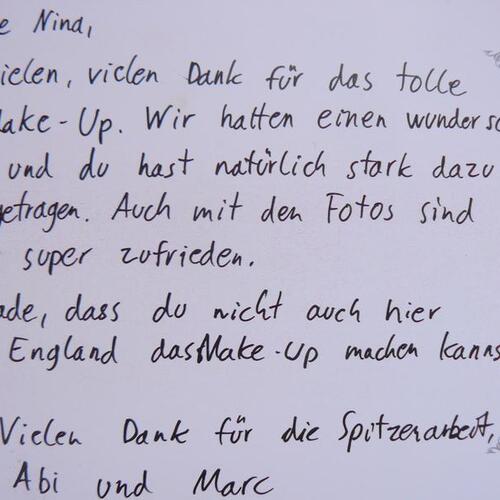 e Nina,
ielen, vielen Dank für das tolle
Make-Up. Wir hatten einen wundersc
und du hast natürlich stark dazu
getragen. Auch mit den Fotos sind
super zufrieden.
ade, dass du nicht auch hier
England das Make-Up machen kanns
Vielen Dank für die Spitzenarbeit,
Abi und Marc